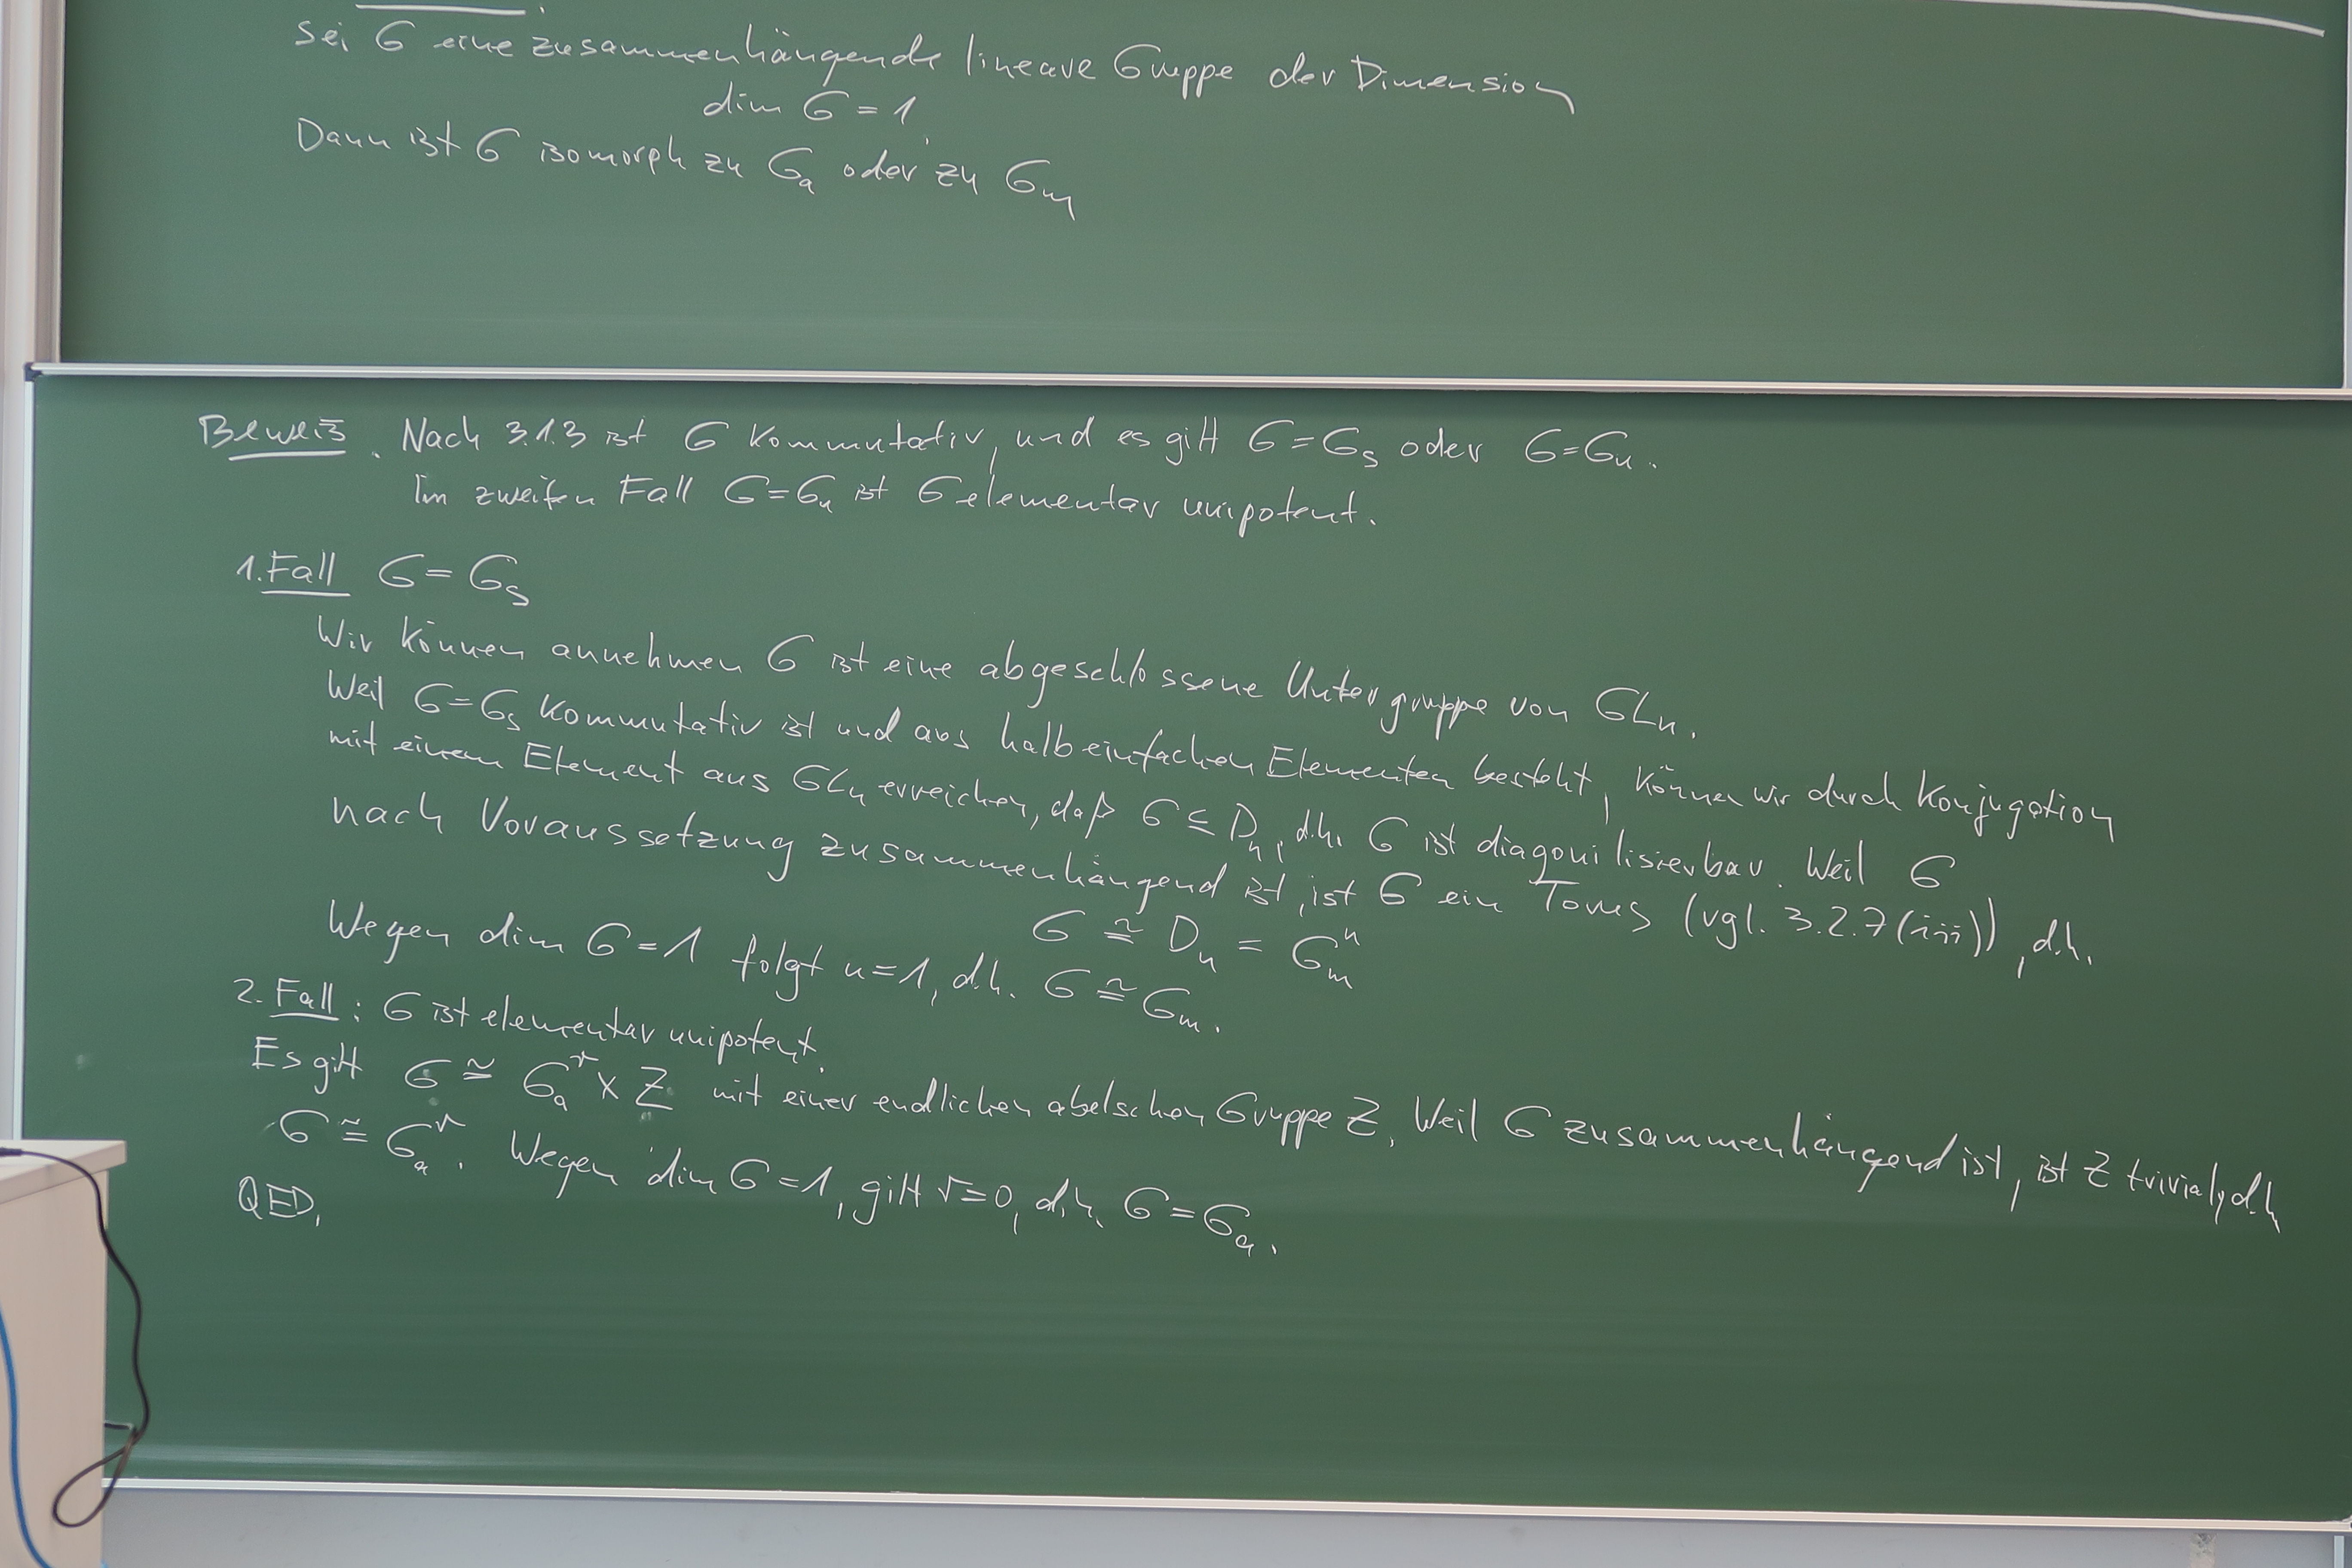 Sei G eine zusammenhängende lineare Gruppe der Dimension
dim G = 1.
Dann ist G isomorph zu Gₐ oder zu Gₘ
Beweis. Nach 3.1.3 ist G kommutativ, und es gilt G = Gₛ oder G = Gᵤ.
Im zweiten Fall G = Gᵤ ist G elementar unipotent.
1. Fall G = Gₛ
Wir können annehmen G ist eine abgeschlossene Untergruppe von GLₙ.
Weil G = Gₛ kommutativ ist und aus halbeinfachen Elementen besteht, können wir durch Konjugation
mit einem Element aus GLₙ erreichen, daß G ⊆ Dₙ, d.h. G ist diagonilisierbar. Weil G
nach Voraussetzung zusammenhängend ist, ist G ein Torus (vgl. 3.2.7 (iii)), d.h.
G ≅ Dₙ = Gₘⁿ
Wegen dim G = 1 folgt n = 1, d.h. G ≅ Gₘ.
2. Fall: G ist elementar unipotent.
Es gilt G ≅ Gₐʳ × Z mit einer endlichen abelschen Gruppe Z. Weil G zusammenhängend ist, ist Z trivial, d.h
G ≅ Gₐʳ. Wegen dim G = 1, gilt r = 0, d.h. G = Gₐ.
QED.